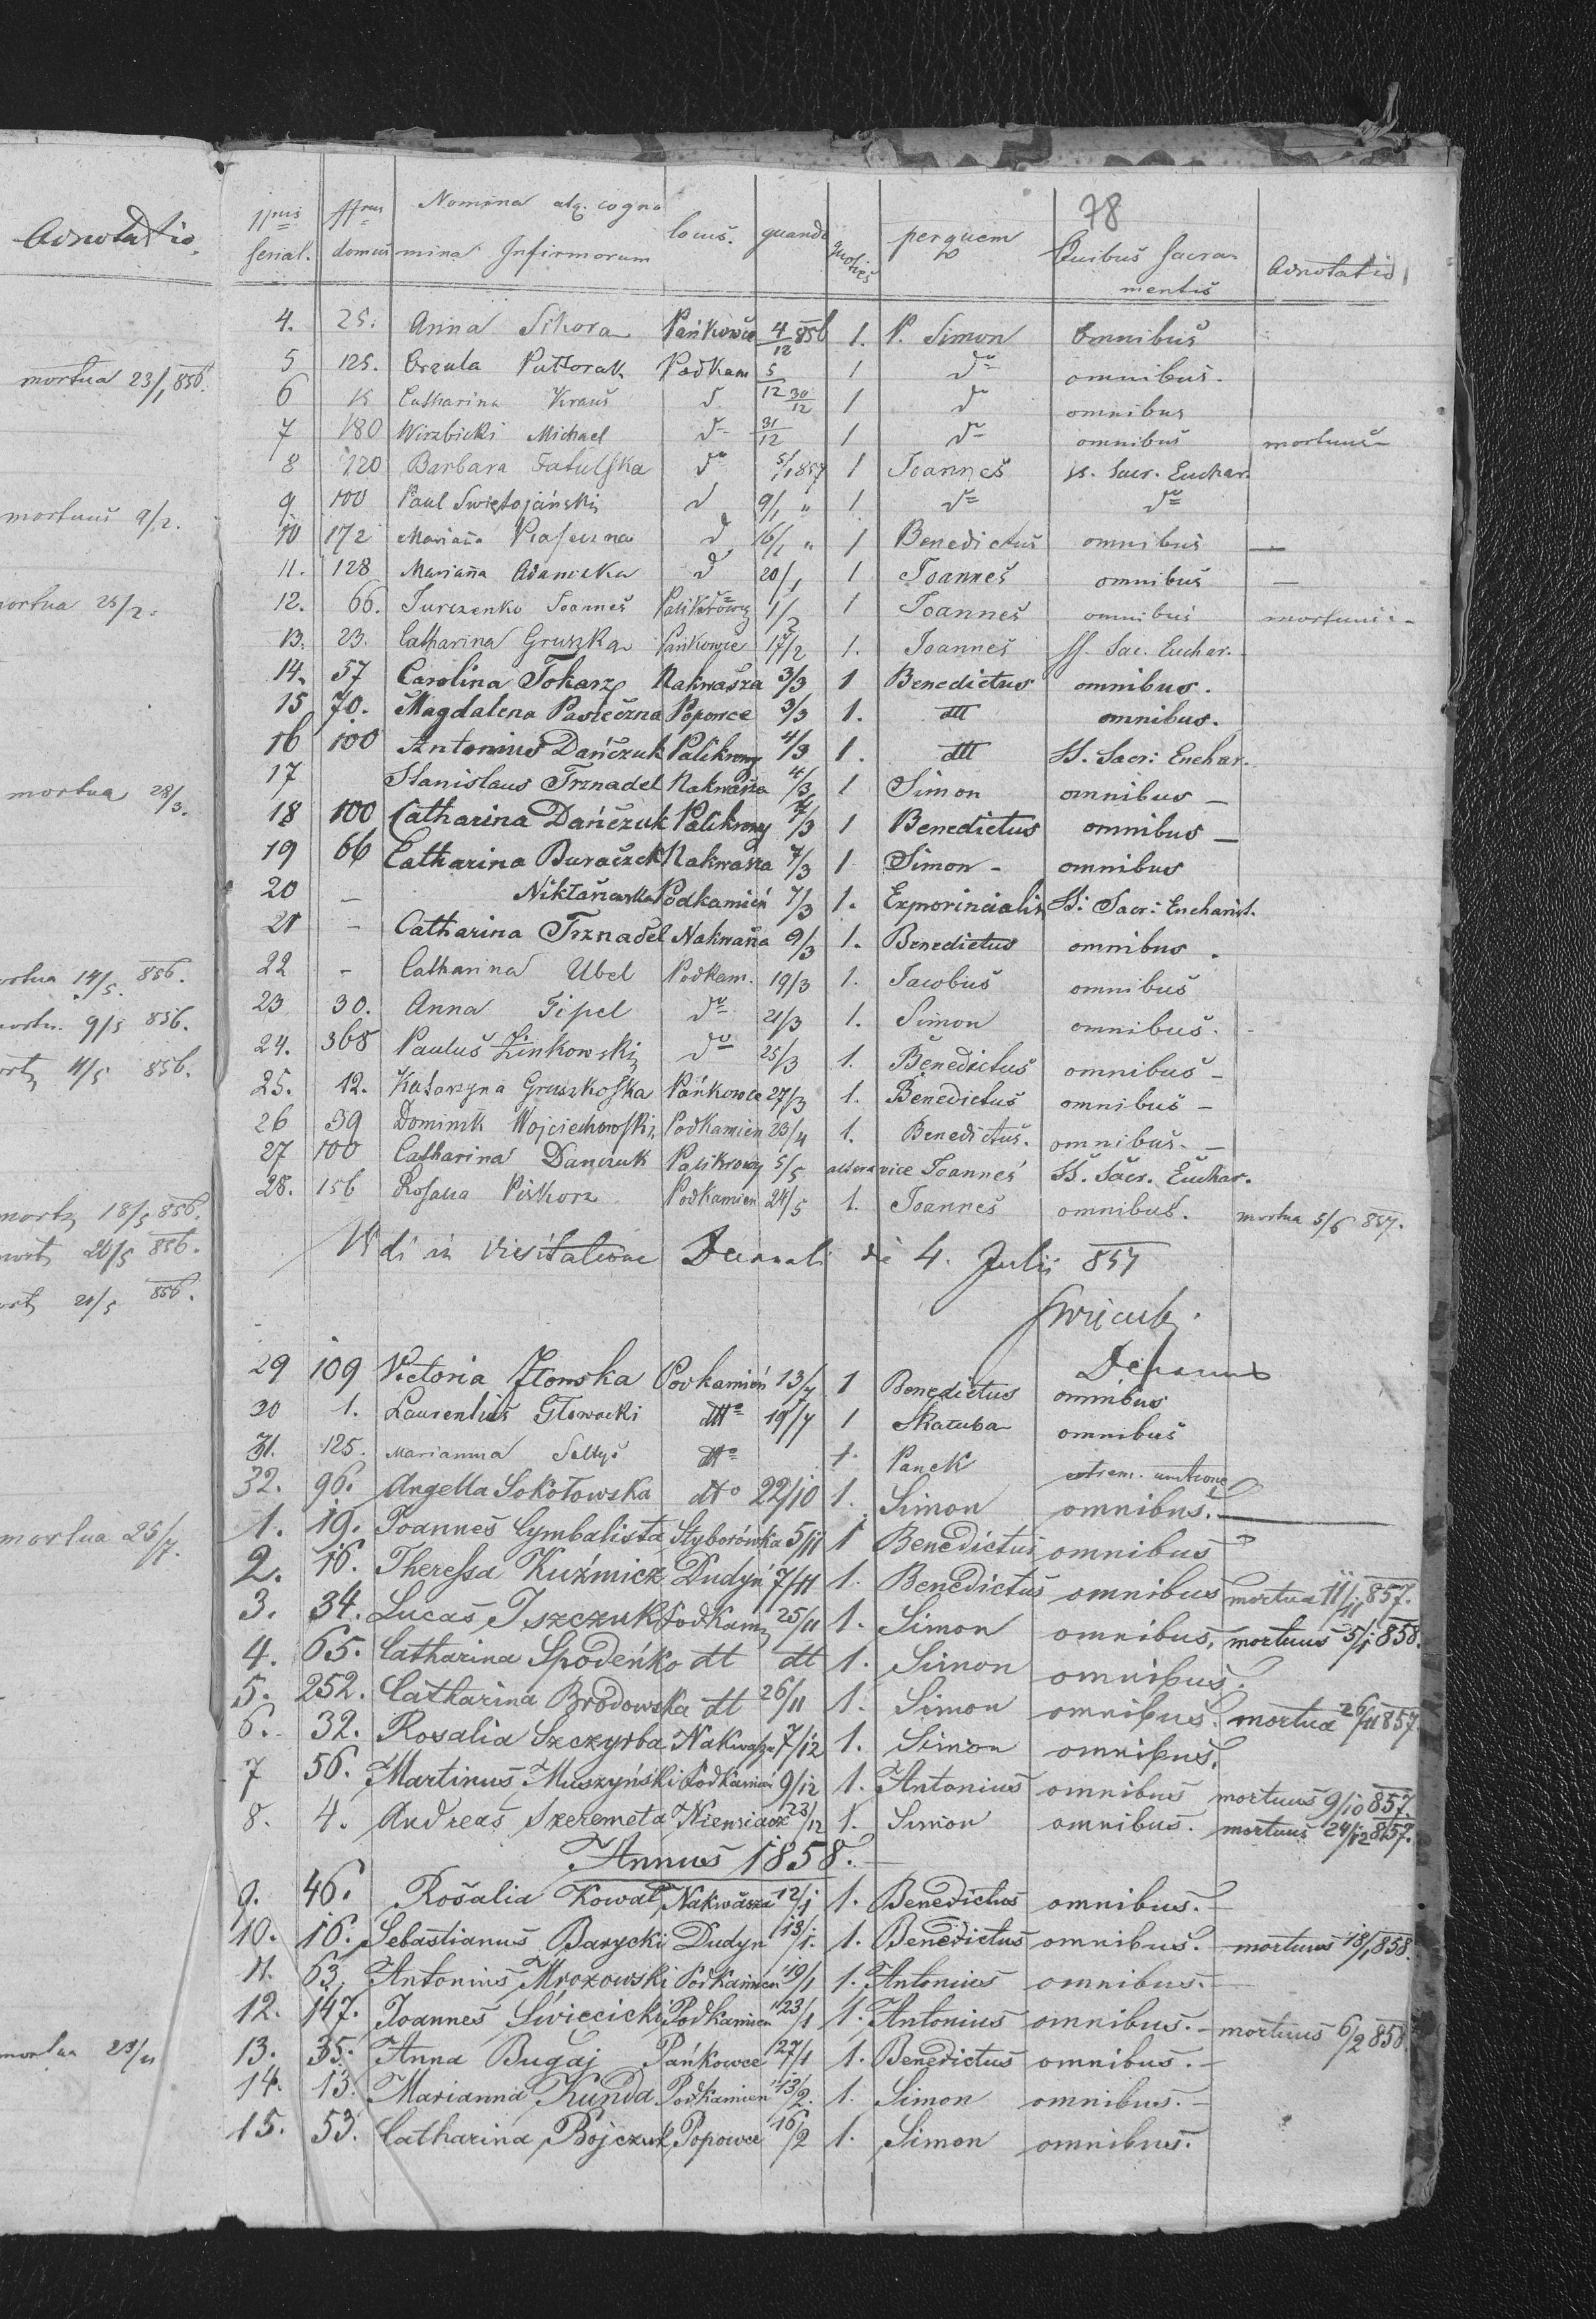 Adnotatio.
mortua 23/1 856.
mortuus 9/2.
mortua 25/2.
mortua 28/3.
14/5. 856.
9/5 856.
11/5 856.
mort 18/5 856.
26/5 856.
21/5 856.
mortua 25/7.
mortua 23/11
78
Nrus serial. Nrus domus Nomina atq. cognomina Infirmorum locus. quando quoties per quem Quibus Sacramentis Adnotatio
4. 25. Anna Sikora Pańkowce 4/12 856 1. P. Simon omnibus
5 125. Orzula Pułtorak Podkam 5/12 1 do omnibus.
6 Catharina Kraus d 30/12 1 do omnibus
7 180 Wirzbicki Michael do 31/12 1 do omnibus mortuus
8 120 Barbara Fatulska do 5/1 857 1 Joannes ss. Sacr. Euchar.
9 100 Paul Swiętojański d 9/1 " 1 do do
10 172 Mariana Piaseczna d 16/1 " 1 Benedictus omnibus —
11. 128 Mariana Adamicka d 20/1 1 Joannes omnibus —
12. 66. Jurczenko Joannes Palikrowy 1/2 1 Joannes omnibus mortuus
13. 23. Catharina Gruszka Pańkowce 17/2 1. Joannes ss. Sac. Euchar.
14. 57 Carolina Tokarz Nakwasza 3/3 1 Benedictus omnibus.
15 70. Magdalena Pasieczna Popowce 3/3 1. dtt omnibus.
16 100 Antonius Dańczuk Palikrowy 4/3 1. dtt SS. Sacr: Euchar.
17 Stanislaus Trznadel Nakwasza 4/3 1 Simon omnibus —
18 100 Catharina Dańczuk Palikrowy 7/3 1 Benedictus omnibus —
19 66 Catharina Buraczek Nakwasza 7/3 1 Simon - omnibus
20 — Podkamień 7/3 1. Exprovincialis SS: Sacr: Eucharist.
21 - Catharina Trznadel Nakwasza 9/3 1. Benedictus omnibus.
22 - Catharina Ubel Podkam. 19/3 1. Jacobus omnibus
23 30. Anna Fipel do 21/3 1. Simon omnibus.
24. 368 Paulus Zinkowski do 25/3 1. Benedictus omnibus -
25. 12. Katarzyna Gruszkoska Pańkowce 27/3 1. Benedictus omnibus -
26 39 Dominik Wojciechowski Podkamien 23/4 1. Benedictus. omnibus. —
27 100 Catharina Danczuk Palikrowy 5/5 altera vice Joannes SS. Sacr. Euchar.
28. 156 Rosalia Piskorz Podkamien 24/5 1. Joannes omnibus. mortua 5/6 857.
Vidi in visitatione Decanali die 4. Julii 857
Decanus
29 109 Victoria Podkamień 13/7 1 Benedictus omnibus
30 1. Laurentius Głowacki dtto 19/7 1 Skatuba omnibus
31. 125. Marianna Sołtys dtto 1. Panek extrem. unctione
32. 96. Angella Sokołowska dto 22/10 1. Simon omnibus.
1. 19. Joannes Cymbalista Styborówka 5/11 1 Benedictus omnibus
2. 16. Theressa Kuźmicz Dudyń 7/11 1. Benedictus omnibus mortua 11/11 857.
3. 34. Lucas Iszczuk Podkam 25/11 1. Simon omnibus, mortuus 5/1 858.
4. 65. Catharina Spodeńko dt dt 1. Simon omnibus.
5. 252. Catharina Brodowska dt 26/11 1. Simon omnibus. mortua 26/11 857.
6. 32. Rosalia Szczyrba Nakwasza 7/12 1. Simon omnibus.
7 56. Martinus Muszyński Podkamień 9/12 1. Antonius omnibus mortuus 9/10 857.
8. 4. Andreas Szeremeta 23/12 1. Simon omnibus. mortuus 24/12 857.
Annus 1858.
9. 46. Rosalia Kowal Nakwasza 12/1 1. Benedictus omnibus. -
10. 16. Sebastianus Barycki Dudyn 13/1. 1. Benedictus omnibus. - mortuus 18/1 858.
11. 63. Antonius Mrozowski Podkamien 19/1 1. Antonius omnibus. -
12. 147. Joannes Swiecicki Podkamien 23/1 1. Antonius omnibus. - mortuus 6/2 858.
13. 35. Anna Bugaj Pańkowce 27/1 1. Benedictus omnibus. -
14. 13. Marianna Kunda Podkamien 13/2. 1. Simon omnibus. -
15. 53. Catharina Bojczuk Popowce 16/2 1. Simon omnibus.